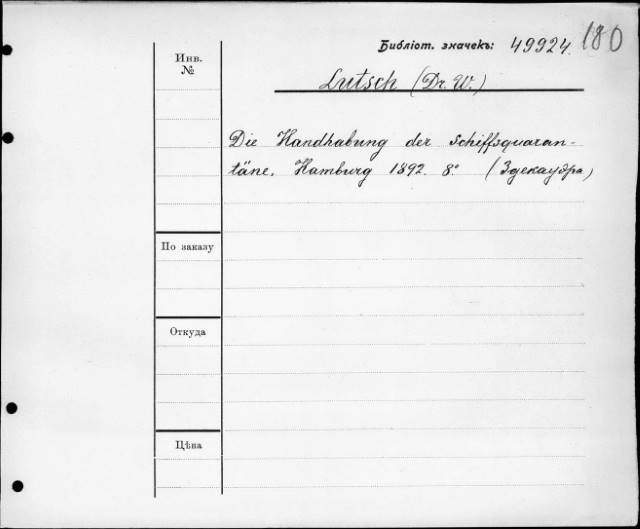 Библіот. значекъ: 49924. 180
Инв.
№
Lutsch (Dr. W.)
Die Handhabung der Schiffsquaran-
täne. Hamburg 1892. 8° (Здекаубра)
По заказу
Откуда
Цѣна